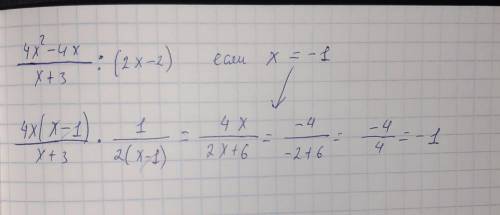 (4x² - 4x)/(x+3) : (2x-2) если x = -1
4x(x-1)/(x+3) · 1/(2(x-1)) = 4x/(2x+6) = -4/(-2+6) = -4/4 = -1